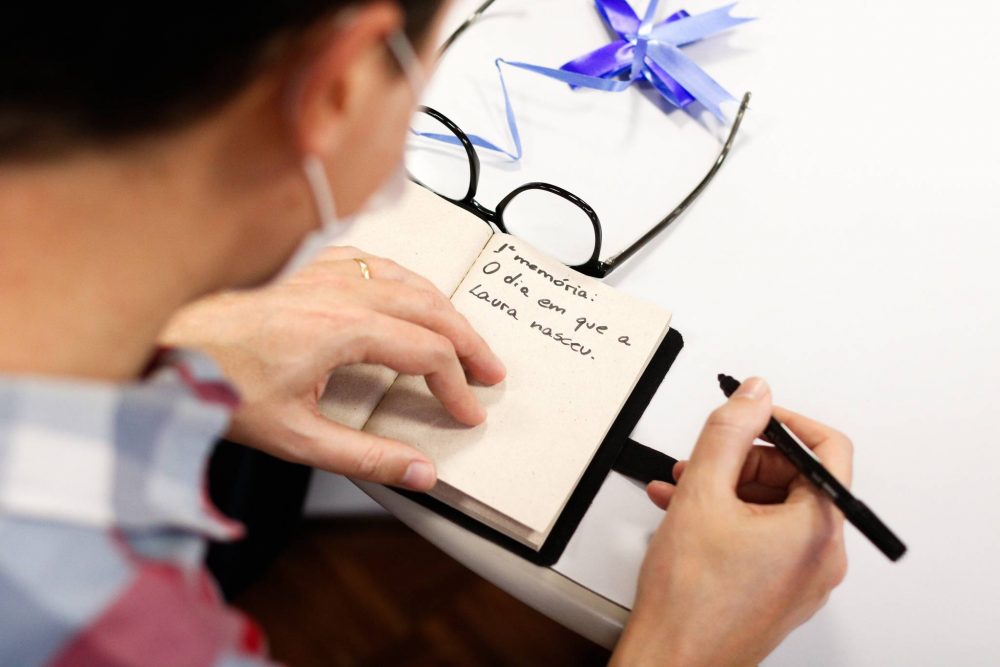 1ª memória:
O dia em que a
Laura nasceu.